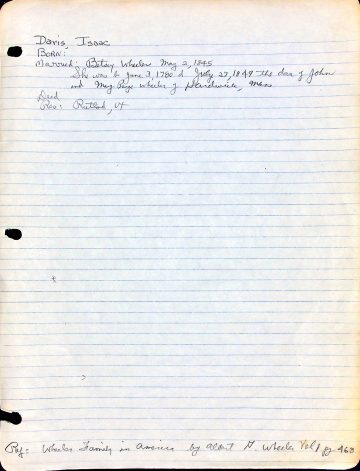 Davis, Isaac
Born:
Married: Betsy Wheeler May 2, 1845
She was b June 3, 1780 d July 27, 1849 the dau of John
and Mary Page Wheeler of Hardwick, Mass
Died
Res: Rutland, Vt
Ref: Wheeler Family in America by Albert G. Wheeler Vol 1 pg 463